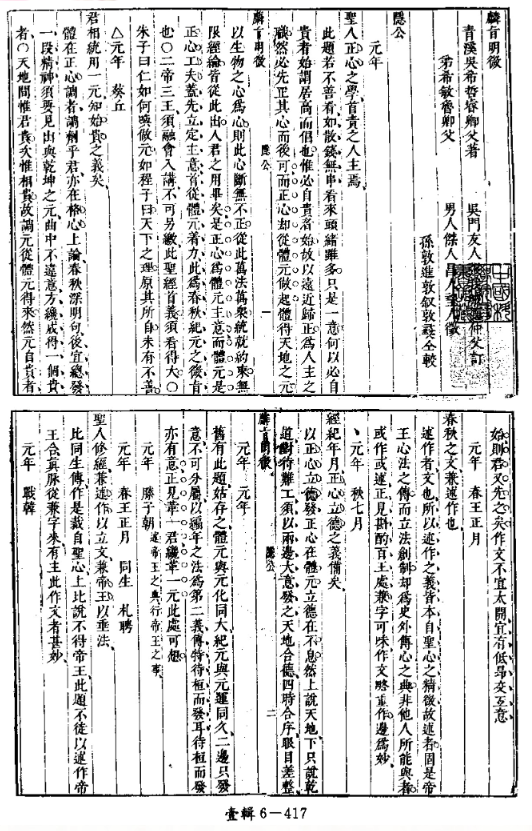 麟旨明微
青溪吳希哲睿卿父著
弟希敏魯卿父
吳門友人
仲父訂
男人傑人昌人望人徵
孫敦進敦叙敦彞仝較
隱公
元年
聖人正心之學首責之人主焉
此題若不善看如散錢無串看來頭緒雖多只是一意何以必自
貴者始謂居高而倡也惟必自貴者始故以遠近歸正爲人主之
職然必先正其心而後可而正心却從體元做起體得天地之元
麟旨明微
隱公
一
以生物之心爲心則此心斷無不正從此萬法萬衆統就約束無
限經綸皆從此出人君之用畢矣是正心爲體元主意而體元是
正心工夫蓋先立定主意者從體元着力此爲春秋紀元之後首
也○二帝三王須融會入講不可另繳此聖經首義須看得大○
朱子曰仁如何喚做元如程子曰天下之理原其所自未有不善
△元年 葵丘
君相統用一元知始貴之義矣
體在正心調者調劑乎君亦在格心上論春秋深明句後宜總發
一段精神須要見出與乾坤之元曲中不違意方纔成得一個貴
者○天地間惟君貴次惟相貴故調元從體元得來然元自貴者
始則君又先之矣作文不宜太開宜有低昻交互意
元年 春王正月
春秋之文兼述作也
述作者文也所以述作之義皆本自聖心之精微故述者固是帝
王心法之傳而立法創制却爲史外傳心之典非他人所能與者
或作或述正見斟酌百王處兼字可味作文略重作邊爲妙
丶元年 秋七月
經紀年月正心立德之義備矣
以正心立德發正心在體元立德在不息然上說天地下只說乾
道對待難工須以兩邊大意發之天地合德四時合序眼目差整
麟旨明微
隱公
二
元年 元年
舊有此題姑存之體元與元化同大紀元與元運同久二邊只發
意不可分屬以編年之法爲第二義傳特待桓而發耳待桓而發
亦有意正見革一君纔革一元此處可想
元年 滕子朝
述帝王之典行帝王之事
元年 春王正月 同生 札聘
聖人修經兼述作以立文兼帝王以垂法
比同生傳作是裁自聖心上比說不得帝王此題不從以述作帝
王合眞脉從兼字來有主此作文者甚妙
元年 戰韓
壹輯 6－417